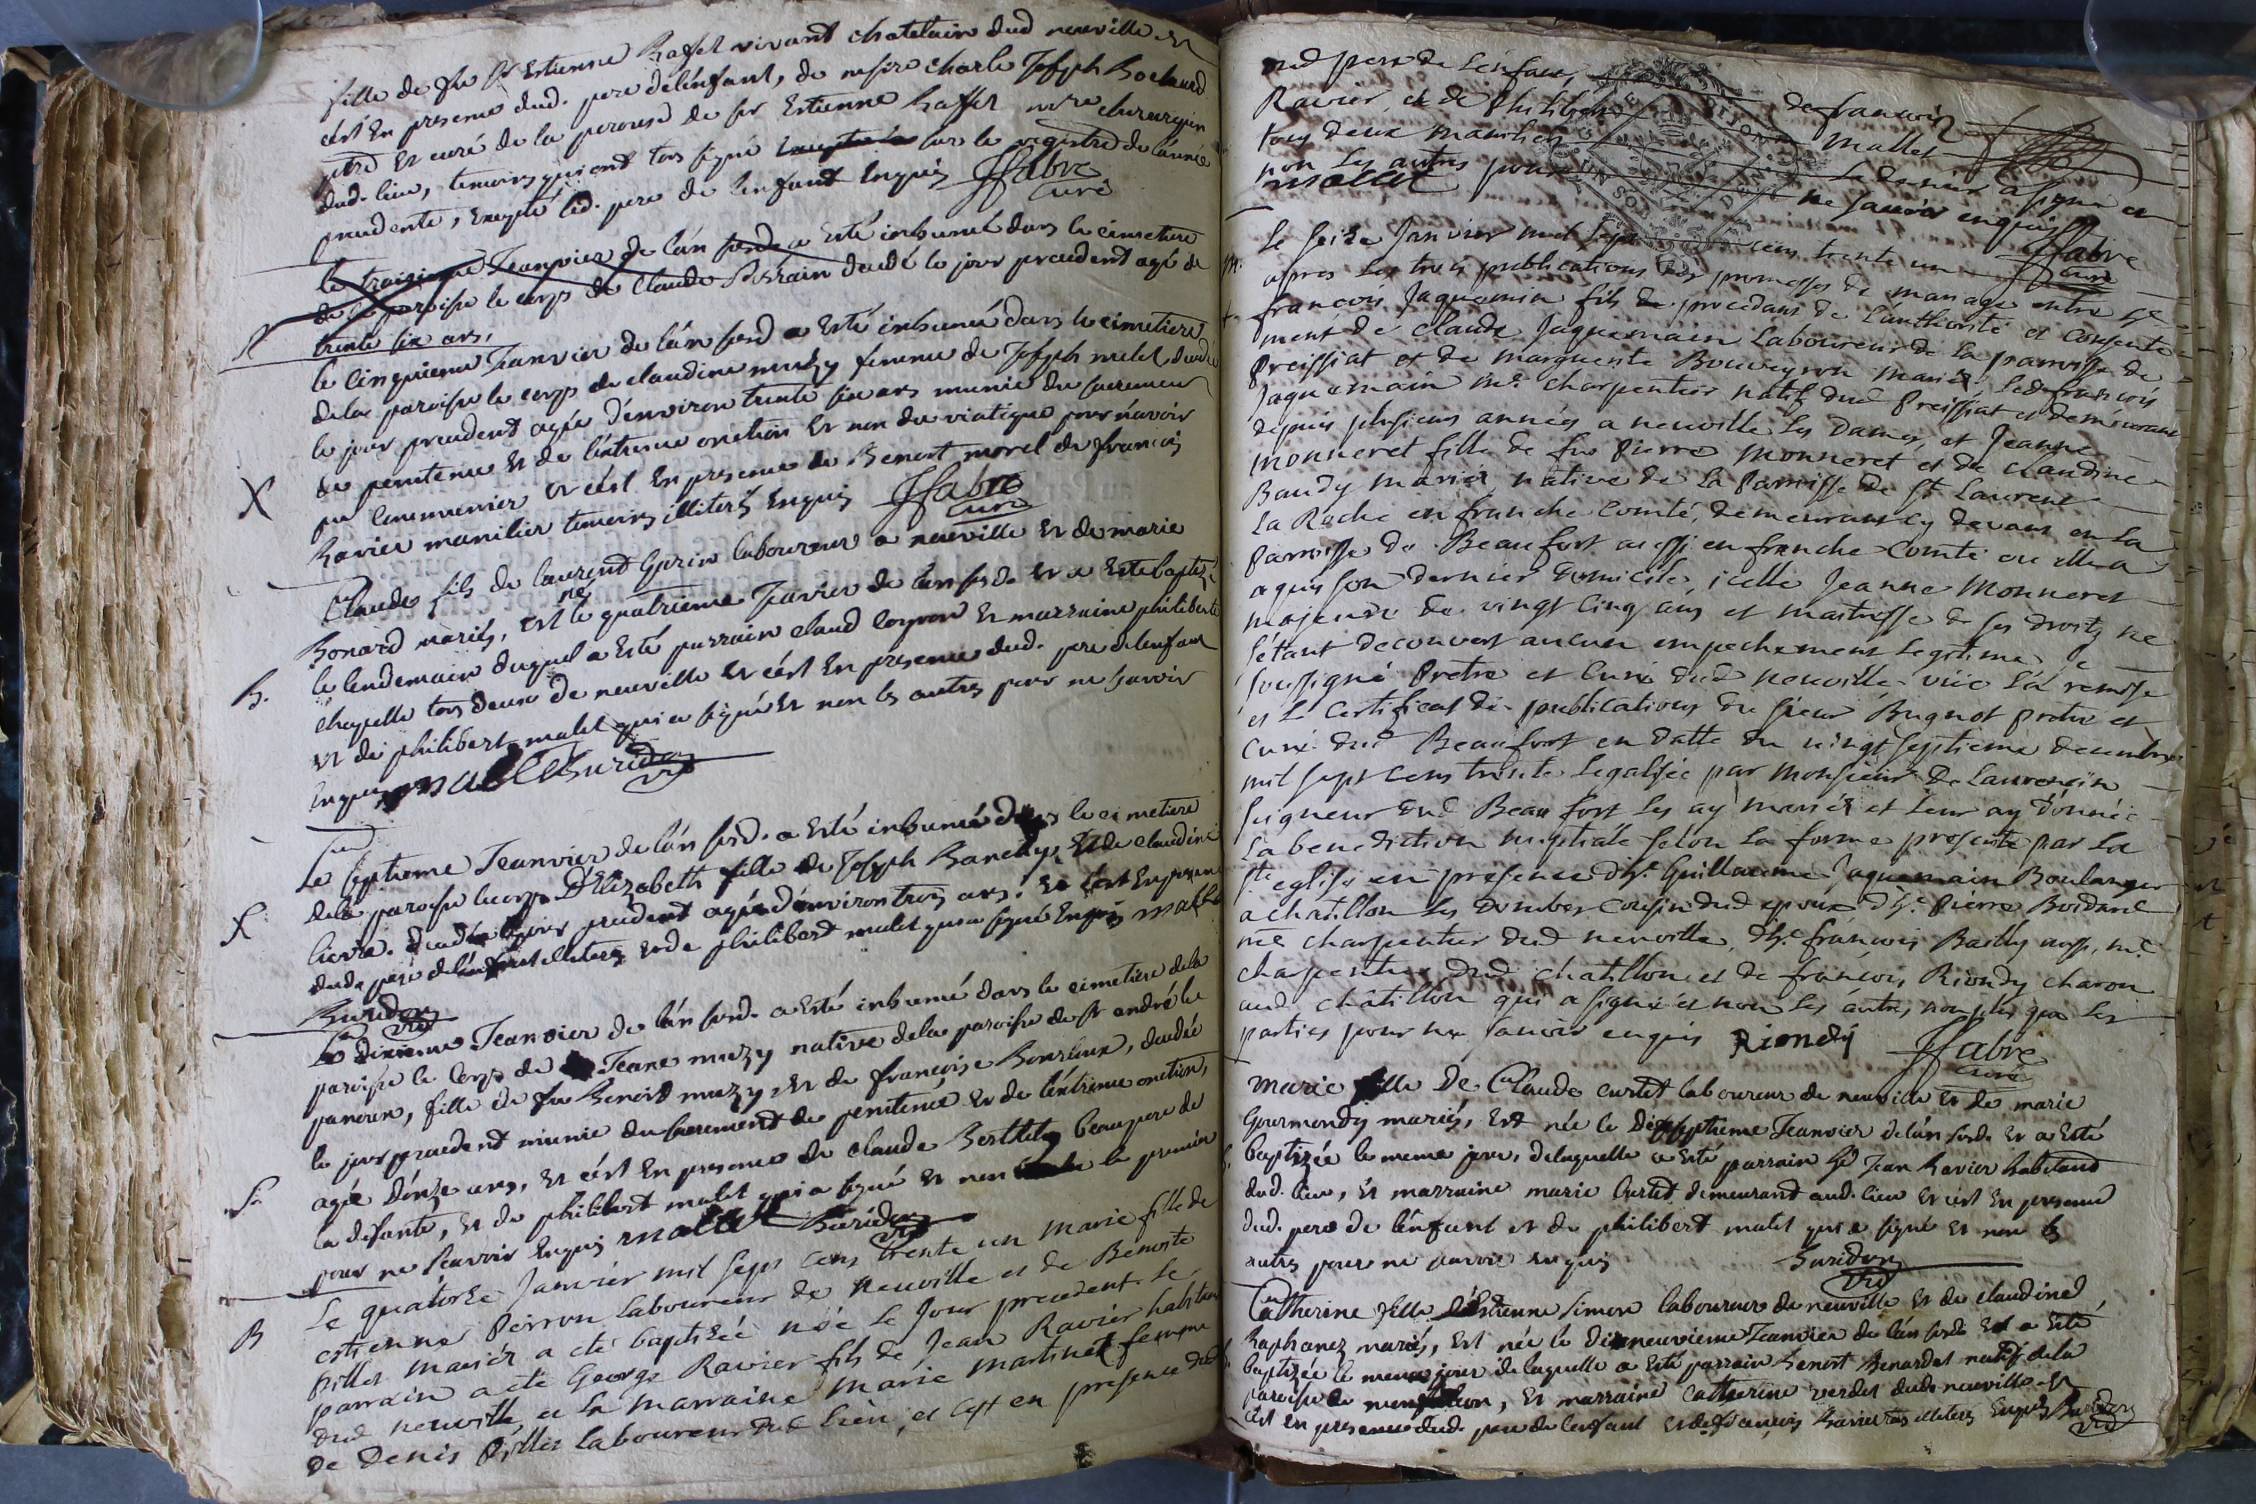 fille de feu Sr Estienne Raffet vivant chatelain dud neuville et
cést En presence dud. pere delénfant, de mesire charle Joseph
ptre Et curé de la perouse de sr Estienne Raffet mtre chirurgien
dud. lieu, temoins qui ont tous signé sur le registre de lánnée
precedente, Excepté led. pere de lenfant Enquis JFabre
curé
le traisieme Jeanvier de lán susd. a Esté inhumé dans le cimetiere
de la paroisse le corps de Claude Perrain decedé le jour precedent agé de
trente six ans,
le Cinquieme Janvier de lán susd a Esté inhumée dans le cimetiere
dela paroisse le corps de claudine muzy femme de Joseph malet decedée
le jour precedent agée dénviron trente six ans munie du sacrement
de penitence Et de léxtreme onction Et non du viatique pour navoir
pu Communier Et cést En presence de Benoit morel de francois
Ravier manilier temoins illiterés Enquis JFabre
curé
X
Claude fils de laurend Gurin laboureur a neuville Et de marie
Bonard mariés, est né le quatrieme Janvier de lan susd. Et a Esté baptizé
le lendemain duquel a Esté parrain claud Coyron Et marraine philiberte
chapelle tous deux de neuville Et cést En presence dud. pere delenfant
Et de philibert malet qui a signé Et non les autres pour ne Savoir
Enquis mallet Buridon
vic
B.
Le septieme Jeanvier de lán susd. a Esté inhumé dans le cimetiere
dela paroisse le corps D'Elizabeth fille de Joseph Banchy, Et de claudine
livra. decedée le jour precedent agée dénviron trois ans. Et cést En presence
dud. pere delénfant illiteré Et de philibert malet qui a signé Enquis mallet
Buridon
vic
Le dixieme Jeanvier de lán susd. a Esté inhumé dans le cimetiere dela
paroisse le Corps de Jeane muzy native dela paroisse de st andré le
panoux, fille de feu Benoist muzy Et de francoise Bouvleur, decedée
le jour precedent munie du sacrement de penitence Et de léxtreme onction,
agée dónze ans, Et cést En presence de Claude Berthet beaupere de
la defunte, Et de philibert malet qui a signé Et non le premier
pour ne Scavoir Enquis mallet Buridon
vic
B
Le quatorze Janvier mil sept cens trente un Marie fille de
estienne Perron Laboureur de Neuville et de Benoite
pillet mariés a eté baptisée née le Jour precedent. Le
parrain a eté George Ravier fils de Jean Ravier habitant
dud neuville, et La Marraine Marie Martinet femme
de Denis Pillet Laboureur dud lieu, et Cest en presence dud
aud pere de Lénfant, de francois
Ravier, et de Philibert Mallet
tous deux maniliers Le dernier a signé et
non Les autres pour ne savoir enquis
Mallet JFabre
curé
m.
Le seize Janvier mil sept cens trente un
apres Les trois publications des promesses de mariage entre hte
francois Jaquemin fils procedant de Lauthorité et Consente
ment de Claude Jaquemain Laboureur de La paroisse de
Preissiat et de marguerite Bouveyron Mariés. Led francois
Jaquemain me. charpentier natif dud Preissiat et demeurant
depuis plusieurs années a neuville Les Dames, et Jeanne
Monneret fille de feu Pierre Monneret et de Claudine
Baudy Mariés native de La Paroisse de St Laurent
La Roche en franche Comté, demeurant cy devant en La
paroisse de Beaufort aussi en franche-Comté ou elle a
aquis son dernier domicile, icelle Jeanne Monneret
majeure de vingt cinq ans et maitresse de ses droits ne
s'étant decouvert aucun empechement Legitime, Je
soussigné Pretre et Curé dud neuville vüe La remise
et L Certificat de publications du sieur Buguot pretre et
Curé dud Beaufort en datte du vingt septieme decembre
mil sept cens trente Legalisée par Monsieur de Laurencin
seigneur dud Beau fort les ay mariés et Leur ay donnée
La benediction nuptiale selon la forme prescrite par La
ste eglise en presence d'h. Guillaume Jaquemain Boulanger
a chatillon Les Dombes Cousin dud epoux d'hte Pierre Boidard
me charpentier dud neuville, d'hte francois Bailly aussi me
charpentier dud chatillon et de francois Riondy charon
aud châtillon qui a signé et non Les autres, non plus que Les
parties pour ne savoir enquis Riondy JFabre
curé
Marie fille De Claude curtet laboureur de neuville Et de marie
Gourmondy mariés, Est née le dixseptieme Jeanvier delán susd. Et a Esté
baptizée le meme jour, delaquelle a Esté parrain hte Jean Ravier habitant
dud. lieu, Et marraine marie Curtet demeurant aud. lieu Et cést En presence
dud. pere de lénfant et de philibert malet qui a signé Et non les
autres pour ne savoir enquis Buridon
vic
Catherine fille déstienne Simon laboureur de neuville Et de claudine
Raphanez mariés, Est née le dixneuvieme Jeanvier de lán susd. Et a Esté
baptizée le meme jour de laquelle a Esté parrain Benoit Benardet natif dela
paroisse de, Et marraine Catherine verdet dud. neuville Et
cést En presence dud. pere de Lenfant Et de francois Ravier tous illiterés Enquis Buridon
vic